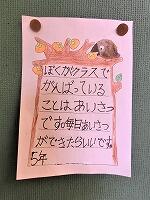 ぼくがクラスで
がんばっている
ことはあいさつ
です。毎日あいさつ
ができたらいいです
5年